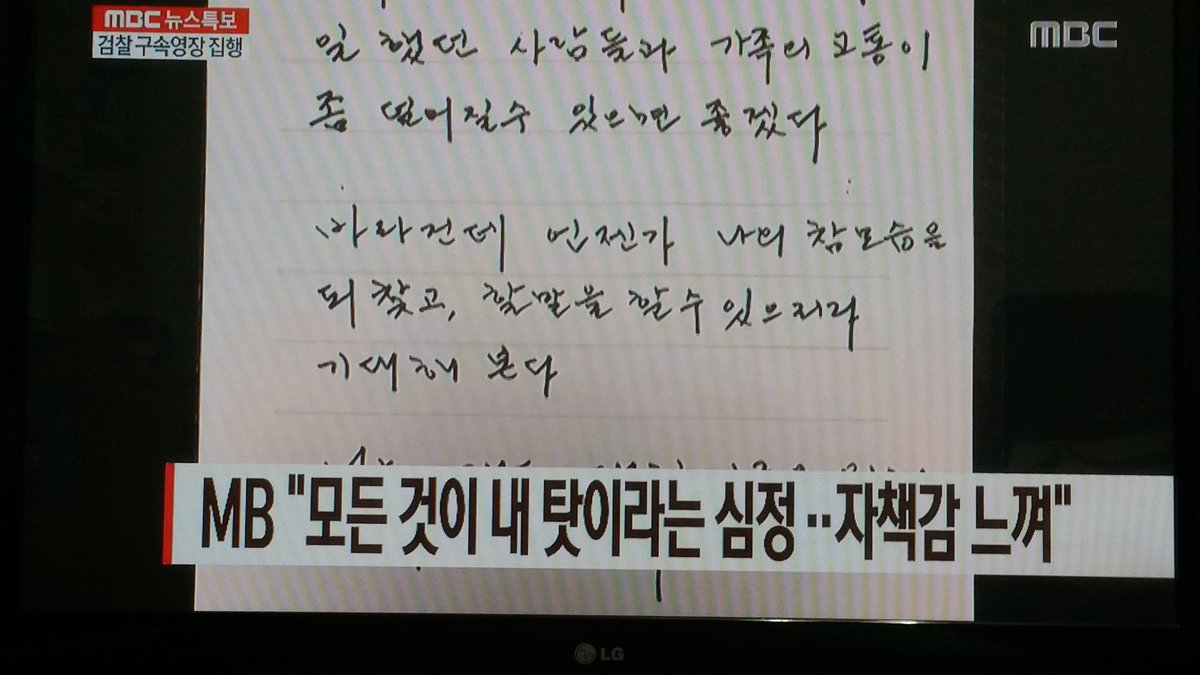 MBC 뉴스특보
검찰 구속영장 집행
MBC
일 했던 사람들과 가족의 고통이
좀 덜어질수 있으면 좋겠다
바라건데 언젠가 나의 참모습을
되찾고, 할말을 할수 있으리라
기대해 본다
MB "모든 것이 내 탓이라는 심정‥자책감 느껴"
LG